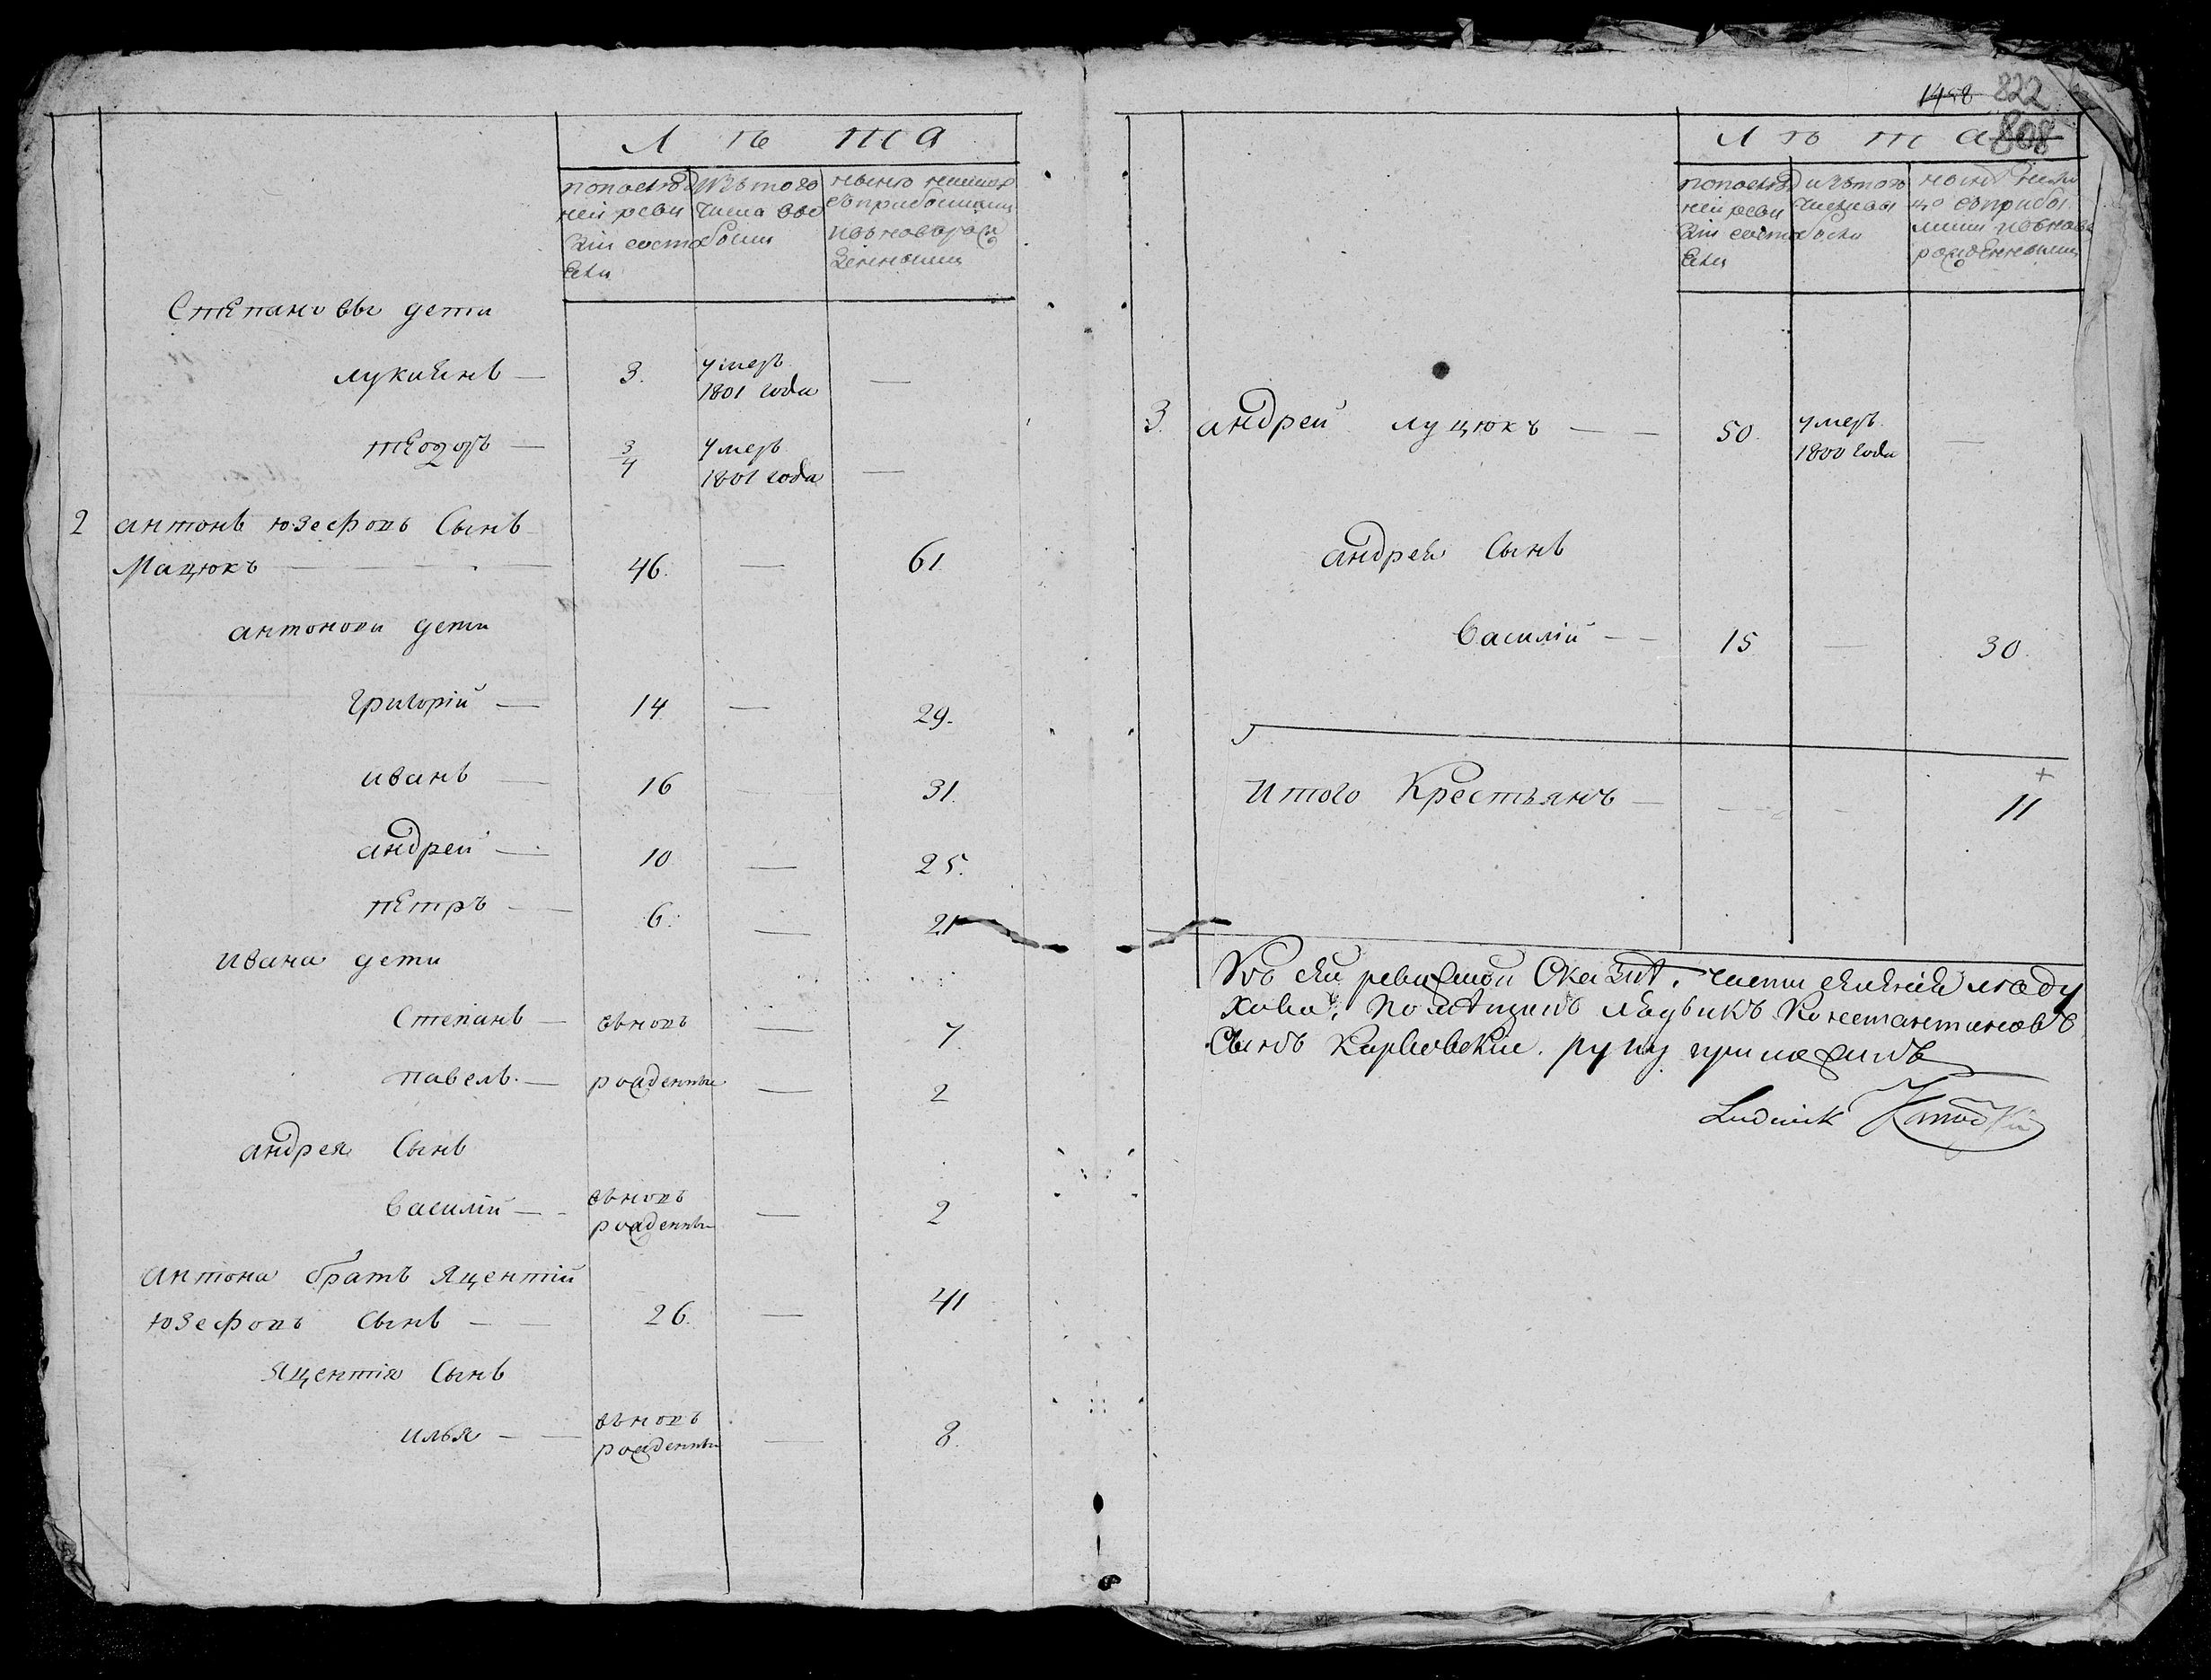 Л ѣ т а
по последней ревизіи состояли
изъ того числа выбыли
ныне налицо съ прибылыми и вновь рожденными
Степановы дети
лукиянъ — 3. умеръ 1801 года —
теодоръ — 3/4 умеръ 1801 года —
2 антонъ юзефовъ Сынъ
Мацюкъ — 46. — 61
антоновы дети
григорій — 14 — 29.
иванъ — 16 — 31.
андрей — 10 — 25.
петръ — 6. — 21
ивана дети
Степанъ — вьновь — 7.
павелъ. — рожденны — 2
андрея Сынъ
Василій — вьновь рожденны — 2
антона братъ яцентій
юзефовъ Сынъ — 26. — 41
яцентія Сынъ
илья — вьновь рожденны — 8.
1458 822
808
Л ѣ т а
по последней ревизіи состояли
изъ того числа выбыли
ныне налицо съ прибылыми и вновь рожденными
3. андрей луцюкъ — 50. умеръ 1800 года —
андрея Сынъ
Василій — 15 — 30.
Итого Крестьянъ — — — 11
Къ сей ревижской Сказкѣ. части
помѣщикъ Константиновъ
Сынъ руку приложилъ
Ludwik